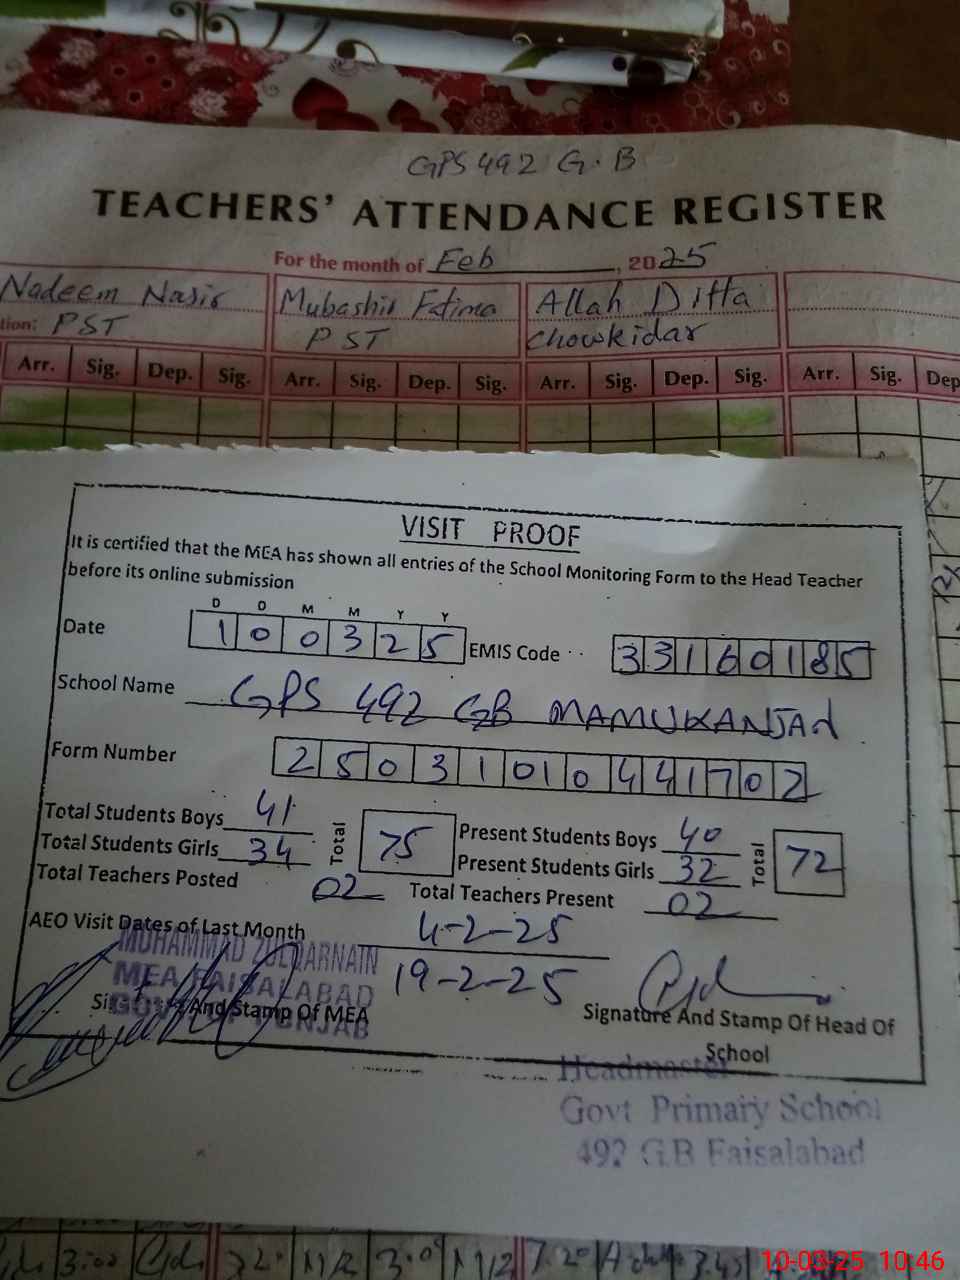 GPS 492 G.B
TEACHERS' ATTENDANCE REGISTER
For the month of Feb, 2025
Nadeem Nasir Mubashir Fatima Allah Ditta
tion: PST PST Chowkidar
Arr. Sig. Dep. Sig. Arr. Sig. Dep. Sig. Arr. Sig. Dep. Sig. Arr. Sig. Dep
VISIT PROOF
It is certified that the MEA has shown all entries of the School Monitoring Form to the Head Teacher
before its online submission
D D M M Y Y
Date 1 0 0 3 2 5 EMIS Code 3 3 1 6 0 1 8 5
School Name GPS 492 GB MAMUKANJAN
Form Number 2 5 0 3 1 01 0 4 4 1 7 0 2
Total Students Boys 41 Total 75 Present Students Boys 40 Total 72
Total Students Girls 34 Present Students Girls 32
Total Teachers Posted 02 Total Teachers Present 02
AEO Visit Dates of Last Month 4-2-25
19-2-25
MUHAMMAD ZULQARNAIN
MEA FAISALABAD
GOVT OF PUNJAB
Signature And Stamp Of MEA
Signature And Stamp Of Head Of
School
Headmaster
Govt Primary School
492 G.B Faisalabad
3:00 3.0 7.20 3.45
10-03-25 10:46